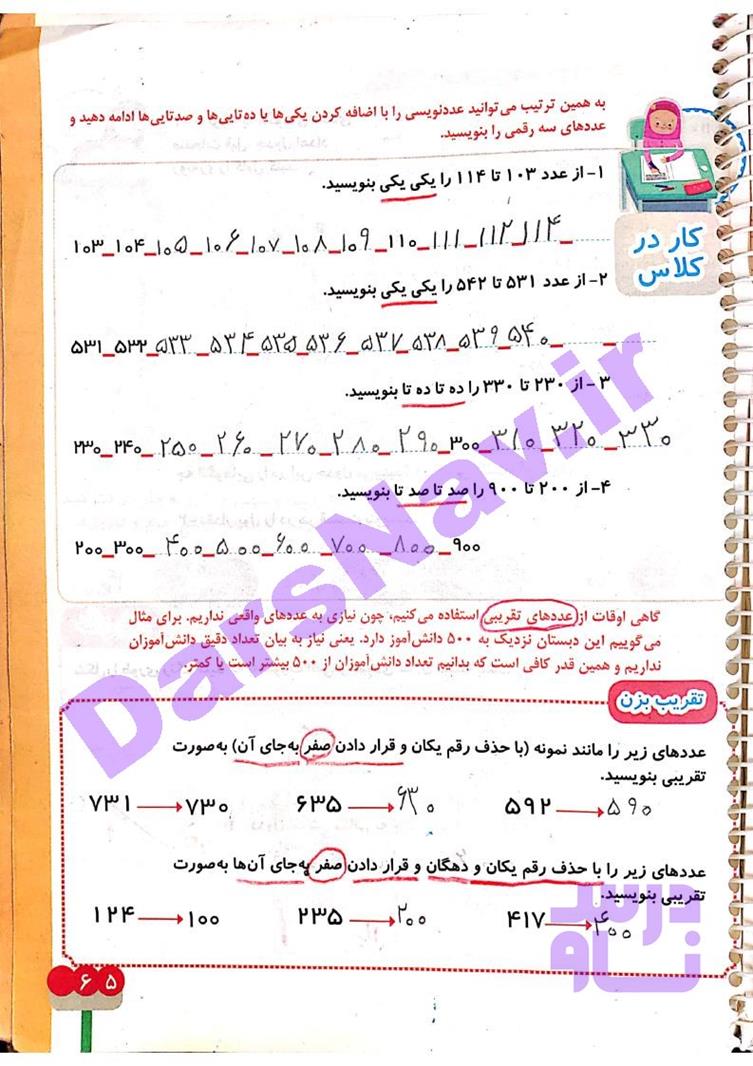 به همین ترتیب می‌توانید عددنویسی را با اضافه کردن یکی‌ها یا ده‌تایی‌ها و صدتایی‌ها ادامه دهید و
عددهای سه رقمی را بنویسید.
کار در
کلاس
۱- از عدد ۱۰۳ تا ۱۱۴ را یکی یکی بنویسید.
۱۰۳_۱۰۴_۱۰۵_۱۰۶_۱۰۷_۱۰۸_۱۰۹_۱۱۰_۱۱۱_۱۱۲_۱۱۴_
۲- از عدد ۵۳۱ تا ۵۴۲ را یکی یکی بنویسید.
۵۳۱_۵۳۲_۵۳۳_۵۳۴_۵۳۵_۵۳۶_۵۳۷_۵۳۸_۵۳۹_۵۴۰_ _
۳- از ۲۳۰ تا ۳۳۰ را ده تا ده تا بنویسید.
۲۳۰_۲۴۰_۲۵۰_۲۶۰_۲۷۰_۲۸۰_۲۹۰_۳۰۰_۳۱۰_۳۲۰_۳۳۰
۴- از ۲۰۰ تا ۹۰۰ را صد تا صد تا بنویسید.
۲۰۰_۳۰۰_۴۰۰_۵۰۰_۶۰۰_۷۰۰_۸۰۰_۹۰۰
گاهی اوقات از عددهای تقریبی استفاده می‌کنیم، چون نیازی به عددهای واقعی نداریم. برای مثال
می‌گوییم این دبستان نزدیک به ۵۰۰ دانش‌آموز دارد. یعنی نیاز به بیان تعداد دقیق دانش‌آموزان
نداریم و همین قدر کافی است که بدانیم تعداد دانش‌آموزان از ۵۰۰ بیشتر است یا کمتر.
تقریب بزن
عددهای زیر را مانند نمونه (با حذف رقم یکان و قرار دادن صفر به‌جای آن) به‌صورت
تقریبی بنویسید.
۷۳۱ → ۷۳۰ ۶۳۵ → ۶۳۰ ۵۹۲ → ۵۹۰
عددهای زیر را با حذف رقم یکان و دهگان و قرار دادن صفر به‌جای آن‌ها به‌صورت
تقریبی بنویسید.
۱۲۴ → ۱۰۰ ۲۳۵ → ۲۰۰ ۴۱۷ → ۴۰۰
۶۵
DarsNav.ir
درس
ناو